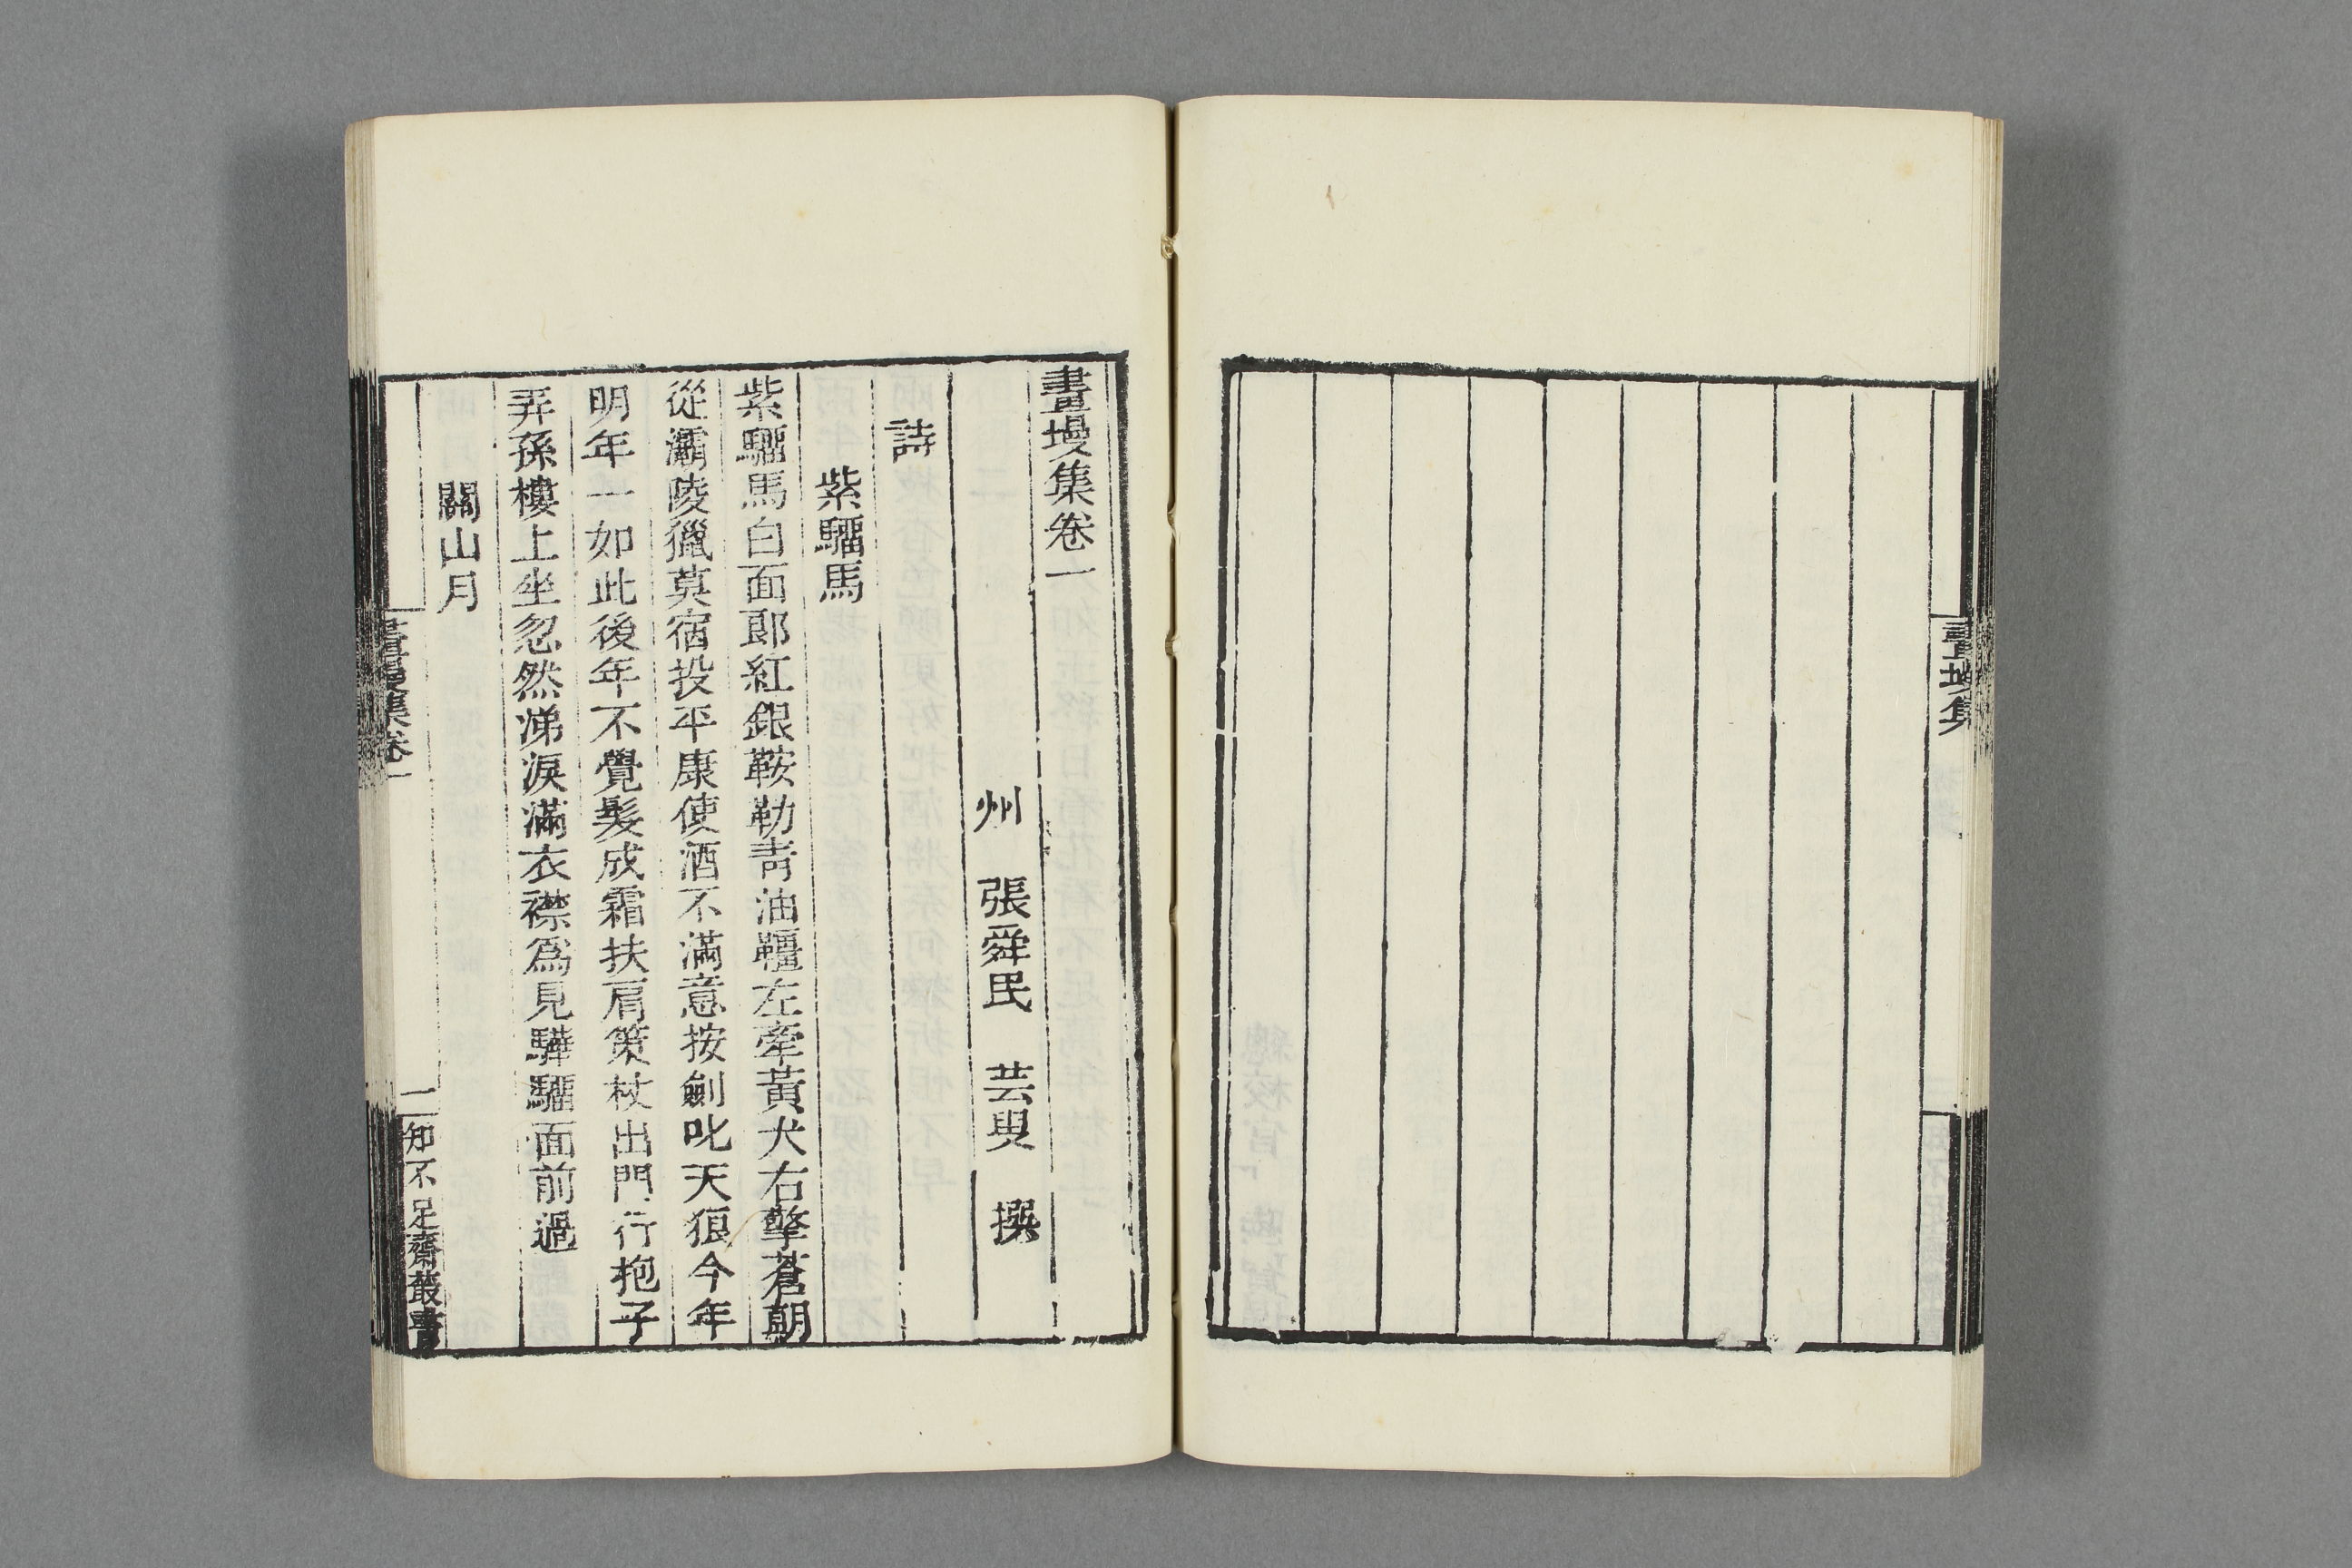 畫墁集
畫墁集卷一
州　張舜民　芸叟　撰
詩
紫騮馬
紫騮馬白面郎紅銀鞍勒靑油韁左牽黃犬右擎蒼朝
從灞陵獵莫宿投平康使酒不滿意按劍叱天狼今年
明年一如此後年不覺髮成霜扶肩策杖出門行抱子
弄孫樓上坐忽然涕淚滿衣襟爲見驊騮面前過
關山月
畫墁集卷一
二知不足齋叢書